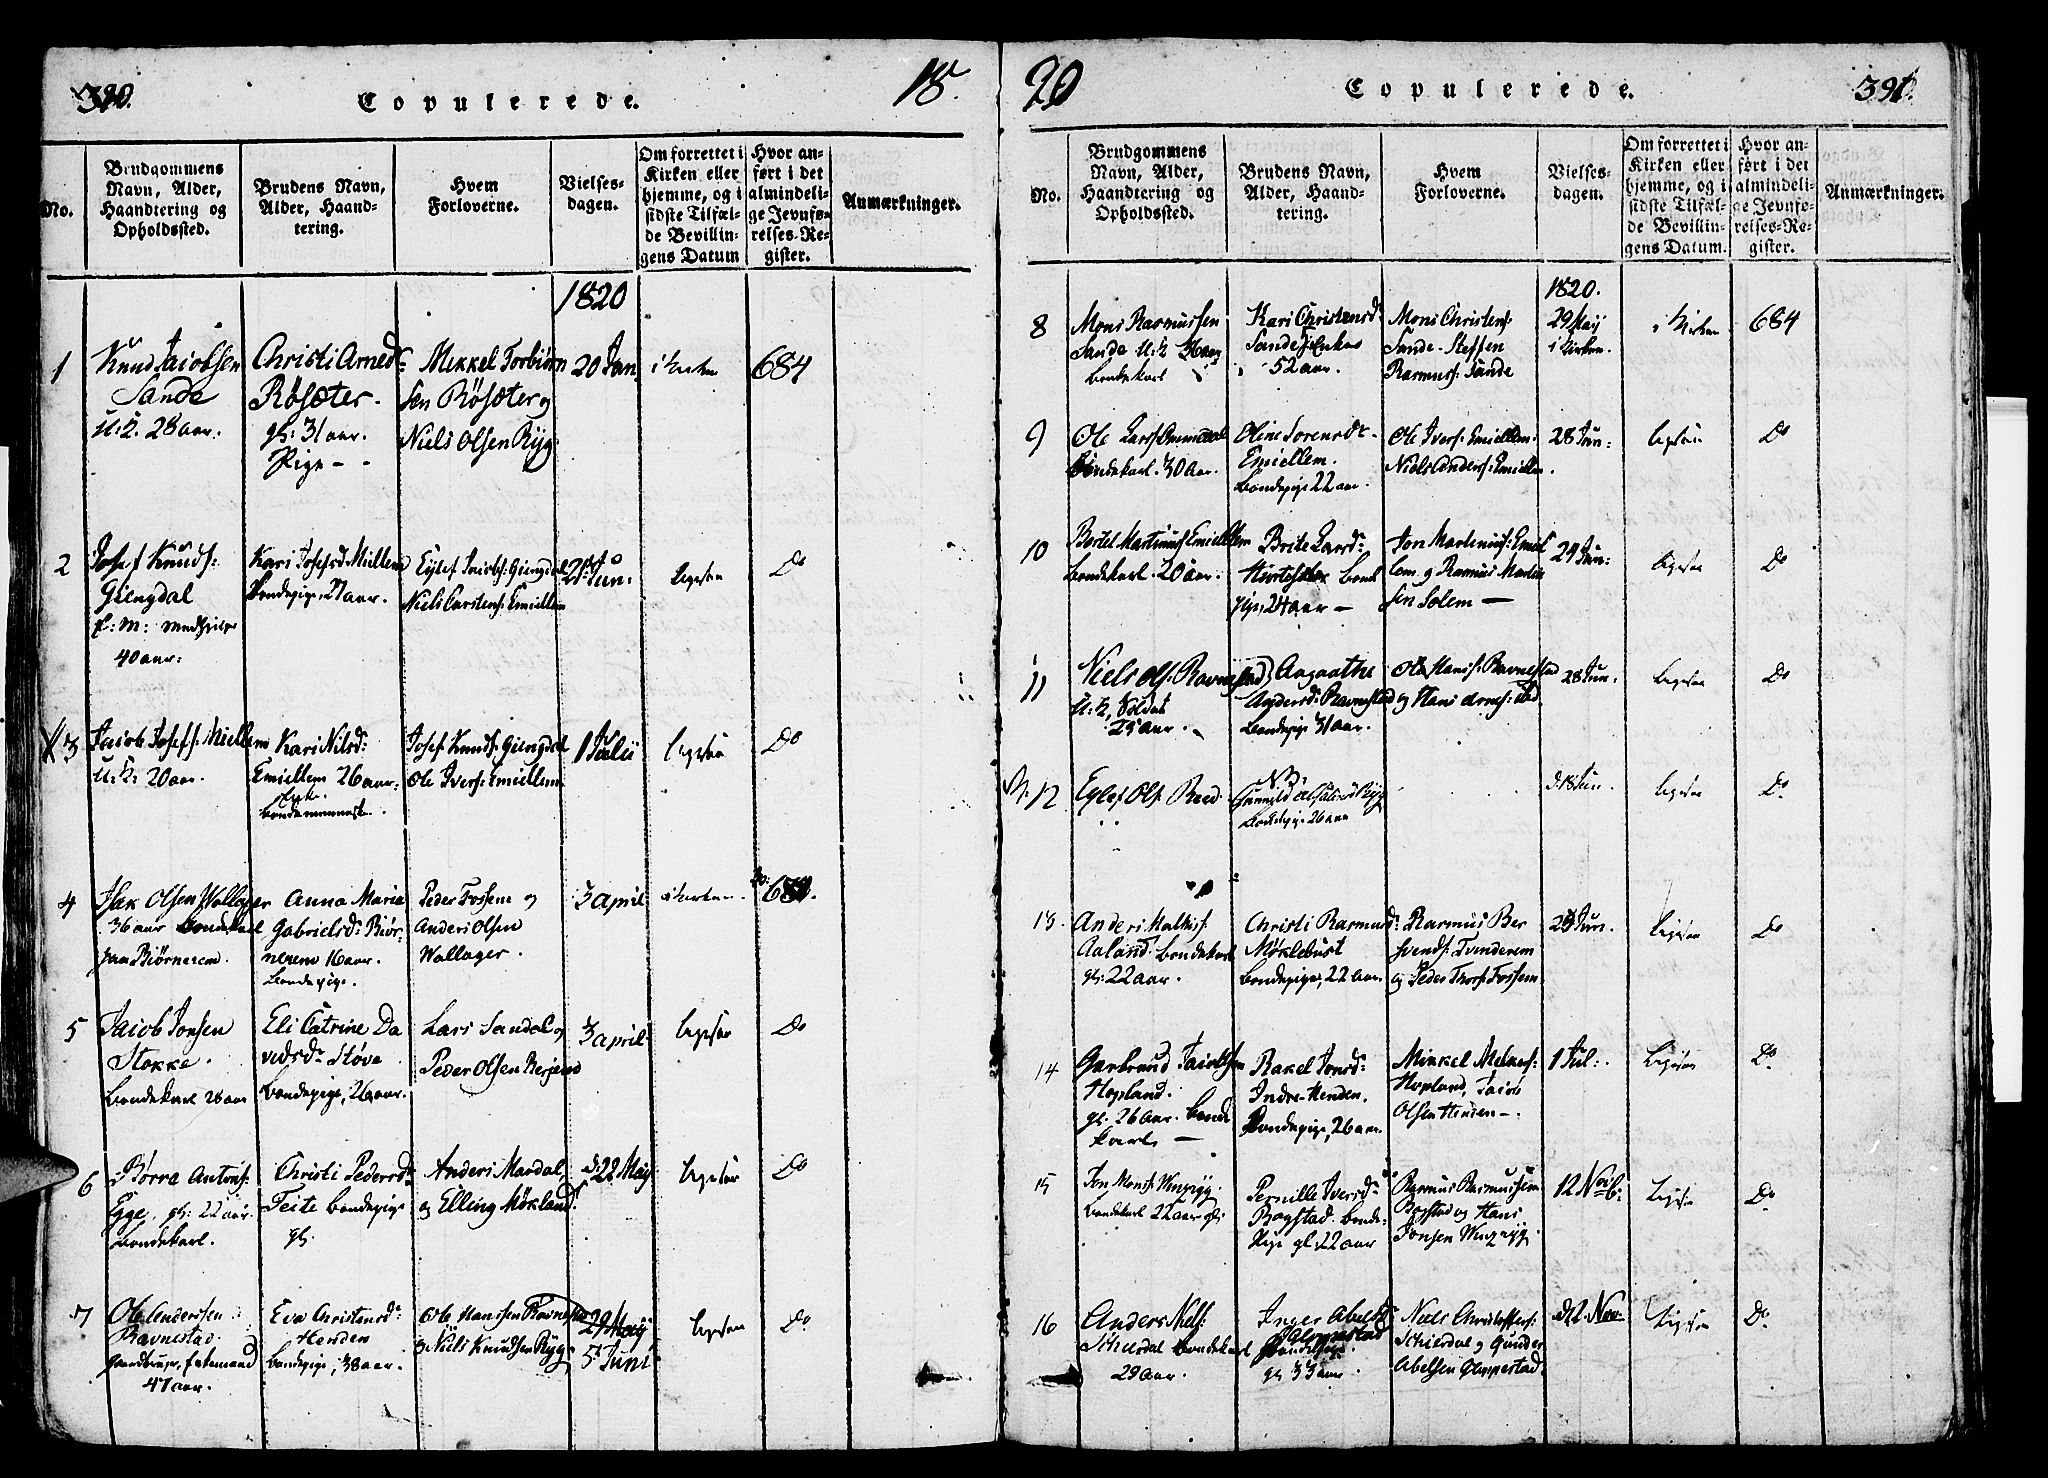 390.
Copulerede.
18
No.
Brudgommens
Navn, Alder,
Haandtering og
Opholdssted.
Brudens Navn,
Alder, Haand-
tering.
Hvem
Forloverne.
Vielses-
dagen.
Om forrettet i
Kirken eller
hjemme, og i
sidste Tilfæl-
de Bevillin-
gens Datum
Hvor an-
ført i det
almindeli-
ge Jevnfø-
relses-Re-
gister.
Anmærkninger.
1820
1
Knud Jacobsen
Sande
u: k: 28 aar:
Christi Arnedr
Røsæter.
gl: 31 aar.
Pige - -
Mikkel Torbiørn
sen Røsæter og
Niels Olsen Ryg:
20 Jan
i Kirken
684
2
Josef Knuds:
Giengdal
40 aar:
Kari Josefsd: Miellem
Bondepige, 27 aar.
Eylef Jacobs: Giengdal
Niels Carstens: Emiellem
Jun:
ligesaa
Do
3
Jacob Josefs: Miellem
u: k: 20 aar.
Kari Nilsd:
Emiellem 26 aar:
Enke.
Josef Knuds: Giengdal
Ole Ivers: Emiellem
1 Julii
ligesaa
Do
4
Isak Olsen Wollager
36 aar Bondekarl
Anna Maria
Gabrielsd: Biør-
nereem 16 aar.
Bondepige.
Peder Fossem og
Anders Olsen
Wollager.
3 april
i Kirken
5
Jacob Jonsen
Stokke.
Bondekarl 28 aar
Eli Catrine Da
vidsdr Støve
Bondepige, 26 aar.
Lars Sandal og
Peder Olsen
3 april:
ligesaa
Do
6
Børra Antons:
Egge. gl: 22 aar.
Bondekarl.
Christi Pedersdr
Teite Bondepige
gl.
Anders Mardal,
og Elling Møkland.
d: 22 May
ligesaa
Do
7
Ole Anderssen
Ravnestad.
47 aar.
Eva Christensdr
Hesden
Bondepige, 38 aar.
Ole Hanssen Ravnestad
og Niels Knudsen Ryg:
29 May
5t Juni
ligesaa
Do
20
Copulerede.
391.
No.
Brudgommens
Navn, Alder,
Haandtering og
Opholdssted.
Brudens Navn,
Alder, Haand-
tering.
Hvem
Forloverne.
Vielses-
dagen.
Om forrettet i
Kirken eller
hjemme, og i
sidste Tilfæl-
de Bevillin-
gens Datum.
Hvor an-
ført i det
almindeli-
ge Jevnfø-
relses-Re-
gister.
Anmærkninger.
1820.
8
Mons Rasmussen
Sande u: k 36 aar
Bondekarl
Kari Christensd:
Sande, Enke
52 aar.
Mons Christens:
Sande - Steffen
Rasmuss: Sande
29 May
i Kirken.
i Kirken
684
9
Ole Lars:
Bondekarl. 30 Aar.
Oline Sorensdr.
Emiellem.
Bondepige 22 aar
Ole Ivers: Emiellem.
Niels Anders: Emiellem
28 Jun:
ligesaa
Do
10
Bertel Martinus: Emiellem
Bondekarl. 20 aar.
Brite Larsdr
Bond
pige, 24 aar —
Jon Martinus: Emiel
lem og Rasmus Martin
sen Solem —
29 Jun:
ligesaa
Do
11
Niels Ols: Ravnestad
u: k, Soldat
25 aar.
Aagaathe
Andersd: Ravnestad
Bondepige 31 aar.
Ole Hans: Ravnestad
og Hans Arnes: ibd.
28 Jun:
ligesaa
Do
12
Eylef Ols: Reed
NB.
Ryg
Bondepige 26 aar
d: 18 Jun.
ligesaa
Do
13.
Anders Mathis:
Aaland Bondekarl
gl: 22 aar.
Christi Rasmusdr
Møklebust
Bondepige, 22 aar.
Rasmus Ber
Svends: Evenderem
og Peder Thors: Fossem
Jun.
ligesaa
Do
14
Garbrand Jacobsen
Hopland.
gl. 26 aar. Bond
karl —
Rakel Jonsd:
Indre-Henden.
Bondepige, 26 aar.
Mikkel Melkers:
Hopland, Jacob
Olsen Henden —.
1 Jul:
ligesaa
Do
15
Jon Mons:
Bondekarl 22 aar gl:
Pernille Iversdr
Rogstad. Bonde-
Pige gl: 22 aar
Rasmus Rasmussen
Rogstad og Hans
Jonsen
12 Novb:
ligesaa
Do
16
Anders Niels:
Schierdal Bondekarl
29 Aar.
Inger Abelsdr
Gloppestad
Bondepige.
gl 33 aar
Niels Christoffers:
Schierdal og Gunder
Abelsen Gloppestad.
d 12 Nov:
ligesaa
Do